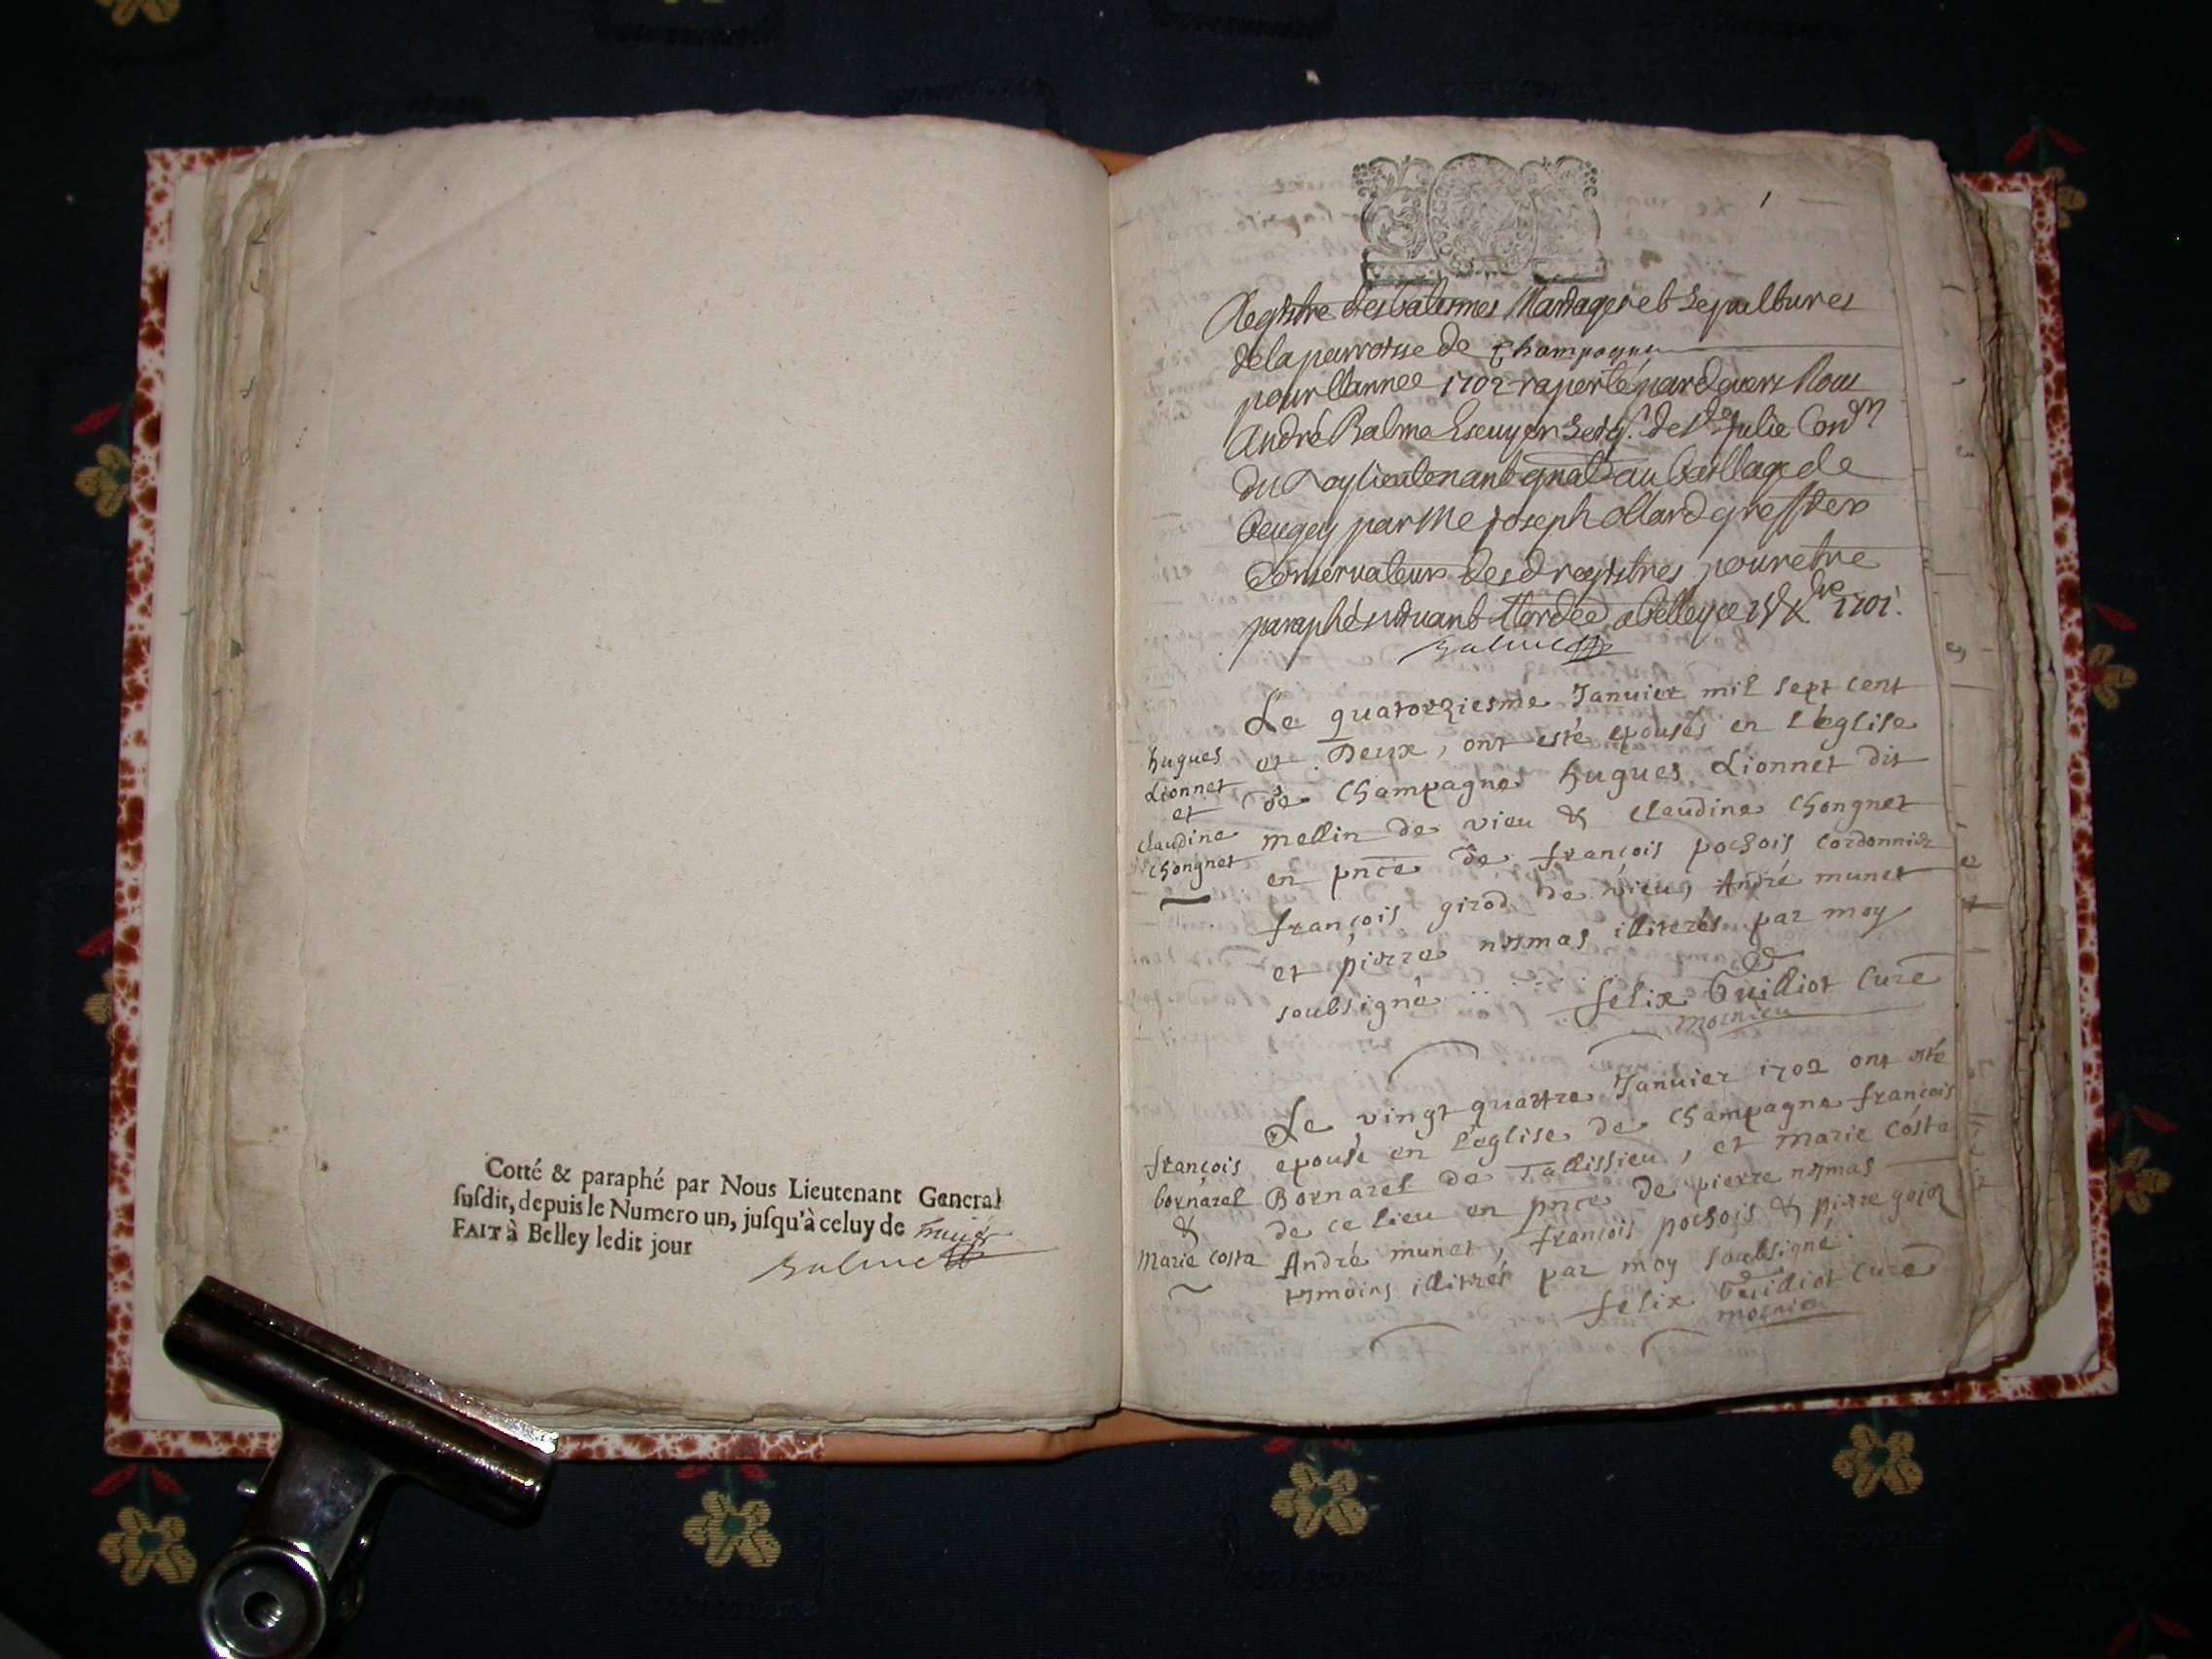 Cotté & paraphé par Nous Lieutenant General
susdit, depuis le Numero un, jusqu'à celuy de
FAIT à Belley ledit jour
Balme
1
Registre des batesmes Mariages et Sepultures
de la parroisse de Champagne
pour l'annee 1702 raporté pardevers Nous
André Balme Escuyer Seigr. de Ste Julie Conser
du Roy lieutenant gnal au bailliage de
beugey par Me Joseph ollard greffier
Conservateur desd registres pour etre
paraphé suivant l'ordce a belley ce xbre 1701.
Balme
Le quatorziesme Januier mil sept cent
et Deux, ont esté epousés en l'eglise
de Champagne hugues Lionnet dit
mellin de vieu & claudine Chongnet
en pnce de françois pochois cordonnier
françois girod de vieu, André munet
et pierre nermas illiterés par moy
soubsigné
felix Guilliot Curé
hugues
Lionnet
et
claudine
Chongnet
Le vingt quattre Januier 1702 ont esté
epousé en l'eglise de Champagne françois
Bornarel de Tallissieu, et marie Costa
de ce lieu en pnce de pierre nermas
André munet, françois pochois & pierre
tesmoins illitrés par moy soubsigné
felix Guilliot Curé
françois
bornarel
&
Marie Costa